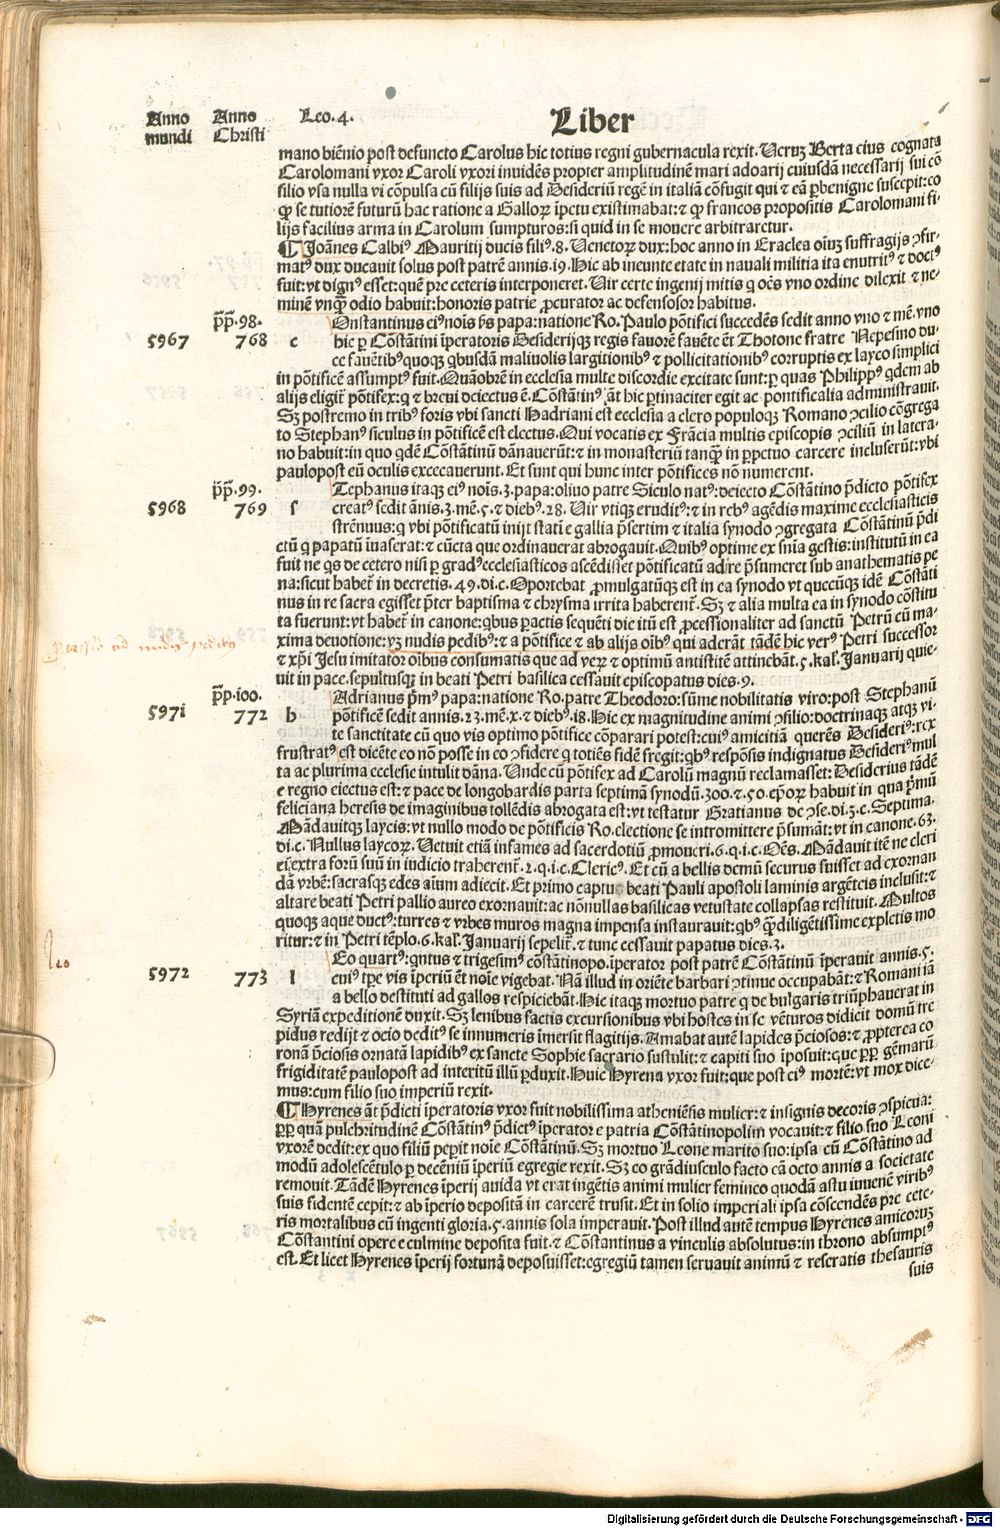 Anno mundi
Anno Christi
Leo. 4.
Liber
mano biēnio post defuncto Carolus hic totius regni gubernacula rexit. Veruȝ Berta eius cognata
Carolomani vxor Caroli vxori inuidēs propter amplitudinē mari adoarij cuiusdā necessarij sui cō
silio vsa nulla vi cōpulsa cū filijs suis ad Desideriū regē in italiā cōfugit qui ⁊ eā ꝑbenigne suscepit: co
ꝙ se tutiorē futurū hac ratione a Galloꝝ īpetu existimabat: ⁊ ꝙ francos propositis Carolomani fi⸗
lijs facilius arma in Carolum sumpturos: si quid in se mouere arbitraretur.
¶ Joānes Calbiꝰ Mauritij ducis filiꝰ. 8. Venetoꝝ dux: hoc anno in Eraclea oīuȝ suffragijs ɔfir⸗
matꝰ dux ducauit solus post patrē annis. 19. Hic ab ineunte etate in nauali militia ita enutritꝰ ⁊ doctꝰ
fuit: vt dignꝰ esset: quē pre ceteris interponeret. Vir certe ingenij mitis q oēs vno ordine dilexit ⁊ ne⸗
minē vnqꝫ odio habuit: honoris patrie ꝓcurator ac defensosor habitus.
p̄p̄. 98.
Onstantinus eiꝰ noīs ẜs papa: natione Ro. Paulo pōtifici succedēs sedit anno vno ⁊ mē. vno
5967 768 c hic ꝑ Cōstātini īperatoris Desiderijqꝫ regis fauorē fauēte ēt Thotone fratre Nepesino du⸗
ce fauētibꝰquoqꝫ qbusdā maliuolis largitionibꝰ ⁊ pollicitationibꝰ corruptis ex layco simplici
in pōtificē assumptꝰ fuit. Quāobrē in ecclesia multe discordie excitate sunt: ꝑ quas Philippꝰ qdem ab
alijs eligit᷑ pōtifex: q ⁊ breui deiectus ē. Cōstātinꝰ āt hic ꝑtinaciter egit ac pontificalia administrauit.
Sȝ postremo in tribꝰ foris vbi sancti Hadriani est ecclesia a clero populoqꝫ Romano ɔcilio cōgrega
to Stephanꝰ siculus in pōtificē est electus. Qui vocatis ex Frācia multis episcopis ɔciliū in latera⸗
no habuit: in quo qdē Cōstātinū dānauerūt: ⁊ in monasteriū tanqꝫ in ꝑpctuo carcere incluserūt: vbi
paulopost eū oculis excecauerunt. Et sunt qui hunc inter pōtifices nō numerent.
p̄p̄. 99.
Tephanus itaqꝫ eiꝰ noīs. 3. papa: oliuo patre Siculo natꝰ: deiecto Cōstātino p̄dicto pōtifex
5968 769 s creatꝰ sedit ānis. 3. mē. 5. ⁊ diebꝰ. 28. Vir vtiqꝫ eruditꝰ: ⁊ in rebꝰ agēdis maxime ecclesiasticis
strēnuus: q vbi pōtificatū inijt statī e gallia p̄sertim ⁊ italia synodo ɔgregata Cōstātinū p̄di
ctū q papatū īuaserat: ⁊ cūcta que ordinauerat abrogauit. Quibꝰ optime ex snīa gestis: institutū in ea
fuit ne qs de cetero nisi ꝑ gradꝰ ecclesiasticos ascēdisset pōtificatū adire p̄sumeret sub anathematis pe
na: sicut habet᷑ in decretis. 49. di. c. Oportebat ꝓmulgatūqꝫ est in ea synodo vt quecūqꝫ idē Cōstāti
nus in re sacra egisset p̄ter baptisma ⁊ chrysma irrita haberent᷑. Sȝ ⁊ alia multa ea in synodo cōstitu
ta fuerunt: vt habet᷑ in canone: qbus ꝑactis sequēti die itū est ꝓcessionaliter ad sanctū Petrū cū ma⸗
xima deuotione: vȝ nudis pedibꝰ: ⁊ a pōtifice ⁊ ab alijs oībꝰ qui aderāt tādē hic verꝰ Petri successor
⁊ xp̄i Jesu imitator oībus consumatis que ad veꝝ ⁊ optimū antistitē attinebāt. 5. kal. Januarij quie⸗
uit in pace. sepultusqꝫ in beati Petri basilica cessauit episcopatus dies. 9.
p̄p. 100.
Adrianus p̄mꝰ papa: natione Ro. patre Theodoro: sūme nobilitatis viro: post Stephanū
5971 772 h pōtificē sedit annis. 23. mē. x. ⁊ diebꝰ. 18. Hic ex magnitudine animi ɔsilio: doctrinaqꝫ atqꝫ vi⸗
te sanctitate cū quo vis optimo pōtifice cōparari potest: cuiꝰ amicitiā querēs Desideriꝰ: rex
frustratꝰ est dicēte eo nō posse in eo ɔfidere q totiēs fidē fregit: qbꝰ respōsis indignatus Desideriꝰ mul
ta ac plurima ecclesie intulit dāna. Unde cū pōtifex ad Carolū magnū reclamasset: Desiderius tādē
e regno eiectus est: ⁊ pace de longobardis parta septimā synodū. 300. ⁊. 50. ep̄oꝝ habuit in qua p̄mū
feliciana heresis de imaginibus tollēdis abrogata est: vt testatur Gratianus de ɔse. di. 3. c. Septima.
Mādauitqꝫ laycis: vt nullo modo de pōtificis Ro. electione se intromittere p̄sumāt: vt in canone. 63.
di. c. Nullus laycoꝝ. Vetuit etiā infames ad sacerdotiū ꝓmoueri. 6. q. i. c. Oēs. Mādauit itē ne cleri
ci extra forū suū in iudicio traherent᷑. 2. q. i. c. Clericꝰ. Et cū a bellis demū securus fuisset ad exornan
dā vrbē: sacrasqꝫ edes aīum adiecit. Et primo captus beati Pauli apostoli laminis argēteis inclusit: ⁊
altare beati Petri pallio aureo exornauit: ac nōnullas basilicas vetustate collapsas restituit. Multos
quoqꝫ aque ductꝰ: turres ⁊ vrbes muros magna impensa instaurauit: qbꝰ qꝫdiligētissime expletis mo
ritur: ⁊ in Petri tēplo. 6. kal. Januarij sepelit᷑. ⁊ tunc cessauit papatus dies. 3.
Eo quartꝰ: qntus ⁊ trigesimꝰ cōstātinopo. īperator post patrē Cōstātinū īperauit annis. 5.
5972 773 l cuiꝰ tꝑe vis īperiū ēt noīe vigebat. Nā illud in oriēte barbari ɔtinue occupabāt: ⁊ Romani iā
a bello destituti ad gallos respiciebāt. Hic itaqꝫ mortuo patre q de bulgaris triūphauerat in
Syriā expeditionē duxit. Sȝ lenibus factis excursionibus vbi hostes in se vēturos didicit domū tre
pidus redijt ⁊ ocio deditꝰ se innumeris īmersit flagitijs. Amabat autē lapides p̄ciosos: ⁊ ꝓpterea co
ronā p̄ciosis ornatā lapidibꝰ ex sancte Sophie sacrario sustulit: ⁊ capiti suo īposuit: que ꝓpꝑ gēmarū
frigiditatē paulopost ad interitū illū ꝑduxit. Huic Hyrena vxor fuit: que post eiꝰ mortē: vt mox dice⸗
mus: cum filio suo imperiū rexit.
¶ Hyrenes āt p̄dicti īperatoris vxor fuit nobilissima atheniēsis mulier: ⁊ insignis decoris ɔspicua:
ꝓpꝑ quā pulchritudinē Cōstātinꝰ p̄dictꝰ īperator e patria Cōstātinopolim vocauit: ⁊ filio suo Leoni
vxorē dedit: ex quo filiū peꝑit noīe Cōstātinū. Sȝ mortuo Leone marito suo: ipsa cū Cōstātino ad
modū adolescētulo ꝑ decēniū īperiū egregie rexit. Sȝ eo grādiusculo facto cā octo annis a societate
remouit. Tādē Hyrenes īperij auida vt erat ingētis animi mulier femineo quodā astu iuuenē viribꝰ
suis fidentē cepit: ⁊ ab īperio depositā in carcerē trusit. Et in solio imperiali ipsa cōscendēs pre cete⸗
ris mortalibus cū ingenti gloria. 5. annis sola imperauit. Post illud autē tempus Hyrenes amicoruȝ
Cōstantini opere e culmine deposita fuit. ⁊ Cōstantinus a vinculis absolutus: in throno absumptꝰ
est. Et licet Hyrenes īperij fortunā deposuisset: egregiū tamen seruauit animū ⁊ reseratis thesauris
suis
ad nudis pedibꝰ
leo
Digitalisierung gefördert durch die Deutsche Forschungsgemeinschaft - DFG